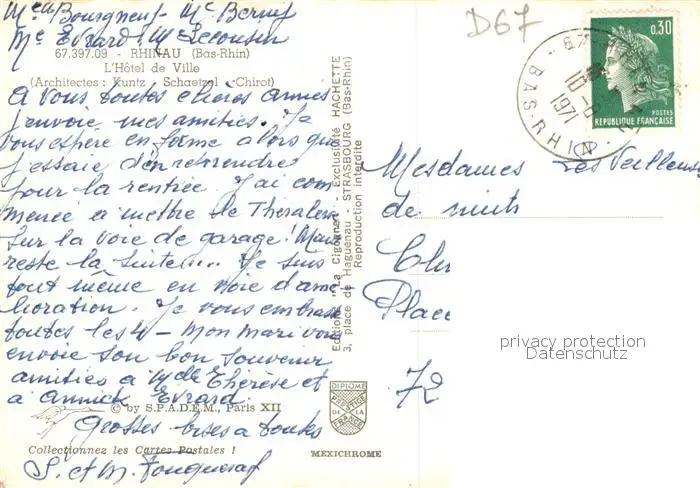 Mme Bourgneuf Me Bernif
Me Evrard Me Lecousin
67.397.09 - RHINAU (Bas-Rhin)
L'Hôtel de Ville
(Architectes : Kuntz - Schaetzel - Chirot)
A vous toutes chères amies
j'envoie mes amitiés. Je
vous espère en forme alors que
j'essaie d'en reprendre
pour la rentrée. J'ai com
mencé à mettre le
sur la voie de garage ! Mais
reste la suite.... Je suis
tout même en voie d'amé
lioration. Je vous embrasse
toutes les 4 - Mon Mari vous
envoie son bon souvenir
amitiés à Mde Thérèse et
à Annick Evrard.
© by S.P.A.D.E.M., Paris XII
Grosses bises à toutes
Collectionnez les Cartes Postales !
S. et M.
Editions "La Cigogne" - Exclusivité HACHETTE
3, place de Haguenau - STRASBOURG (Bas-Rhin)
Reproduction interdite
DIPLOME
PRESTIGE
DE LA
FRANCE
MEXICHROME
D67
BAS-RHIN
1971
0,30
POSTES
REPUBLIQUE FRANÇAISE
Mesdames Les Veilleuses
de nuits
Ch
Place
72
privacy protection
Datenschutz